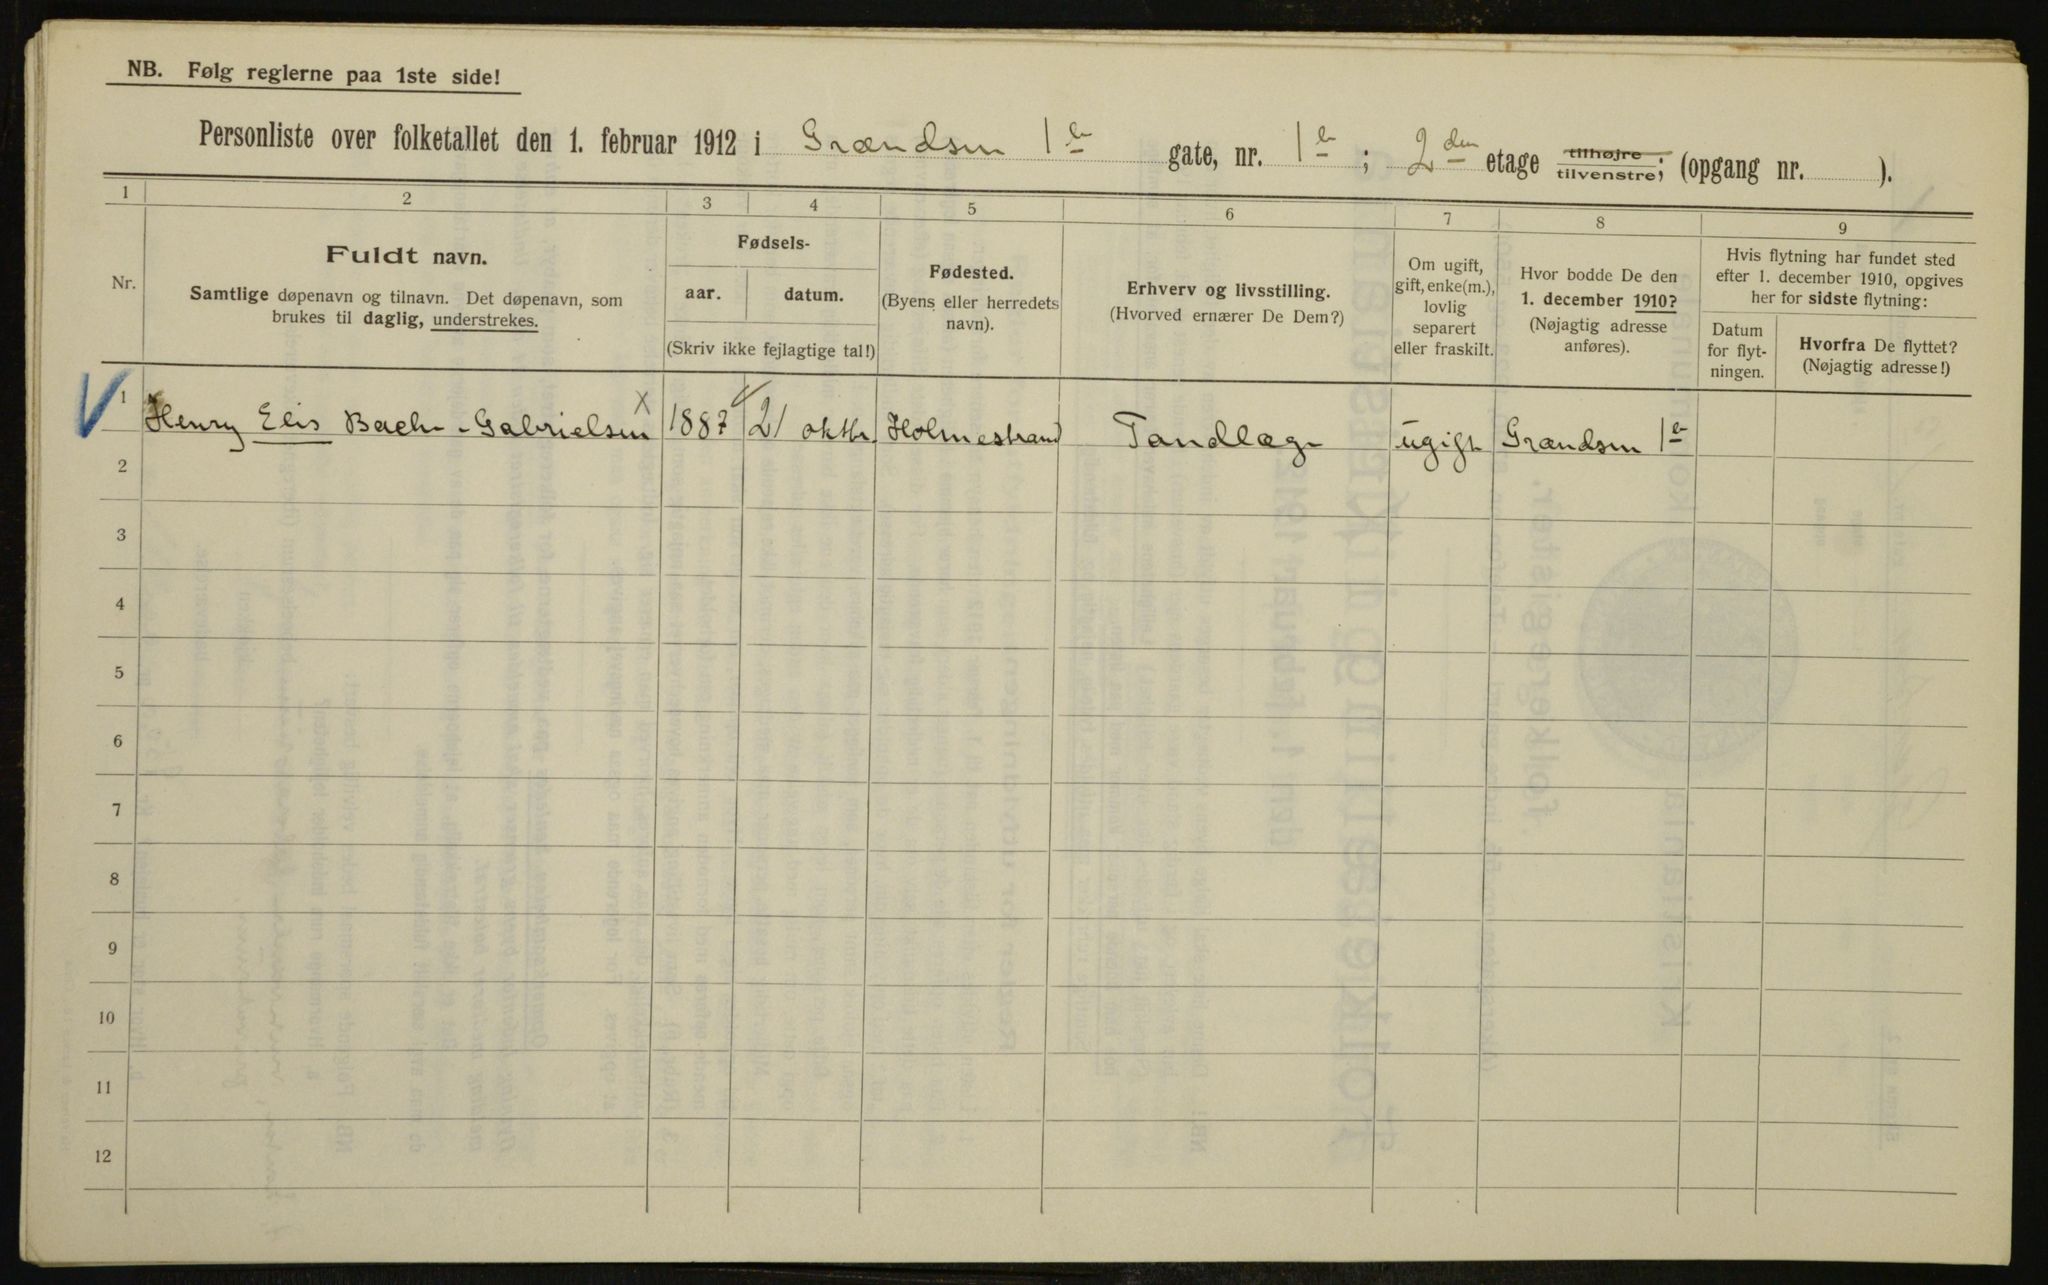 NB. Følg reglerne paa 1ste side!
Personliste over folketallet den 1. februar 1912 i Grændsen 1 b gate, nr. 1 b; 2den etage tilhøjre tilvenstre; (opgang nr. ).
1 2 3 4 5 6 7 8 9
Nr.
Fuldt navn.
Samtlige døpenavn og tilnavn. Det døpenavn, som
brukes til daglig, understrekes.
Fødsels-
aar. datum.
(Skriv ikke fejlagtige tal!)
Fødested.
(Byens eller herredets
navn).
Erhverv og livsstilling.
(Hvorved ernærer De Dem?)
Om ugift,
gift, enke(m.),
lovlig
separert
eller fraskilt.
Hvor bodde De den
1. december 1910?
(Nøjagtig adresse
anføres).
Hvis flytning har fundet sted
efter 1. december 1910, opgives
her for sidste flytning:
Datum
for flyt-
ningen.
Hvorfra De flyttet?
(Nøjagtig adresse!)
1 Henry Elis Bache-Gabrielsen X 1887 21 oktbr. Holmestrand Tandlæge ugift Grændsen 1 b
2
3
4
5
6
7
8
9
10
11
12